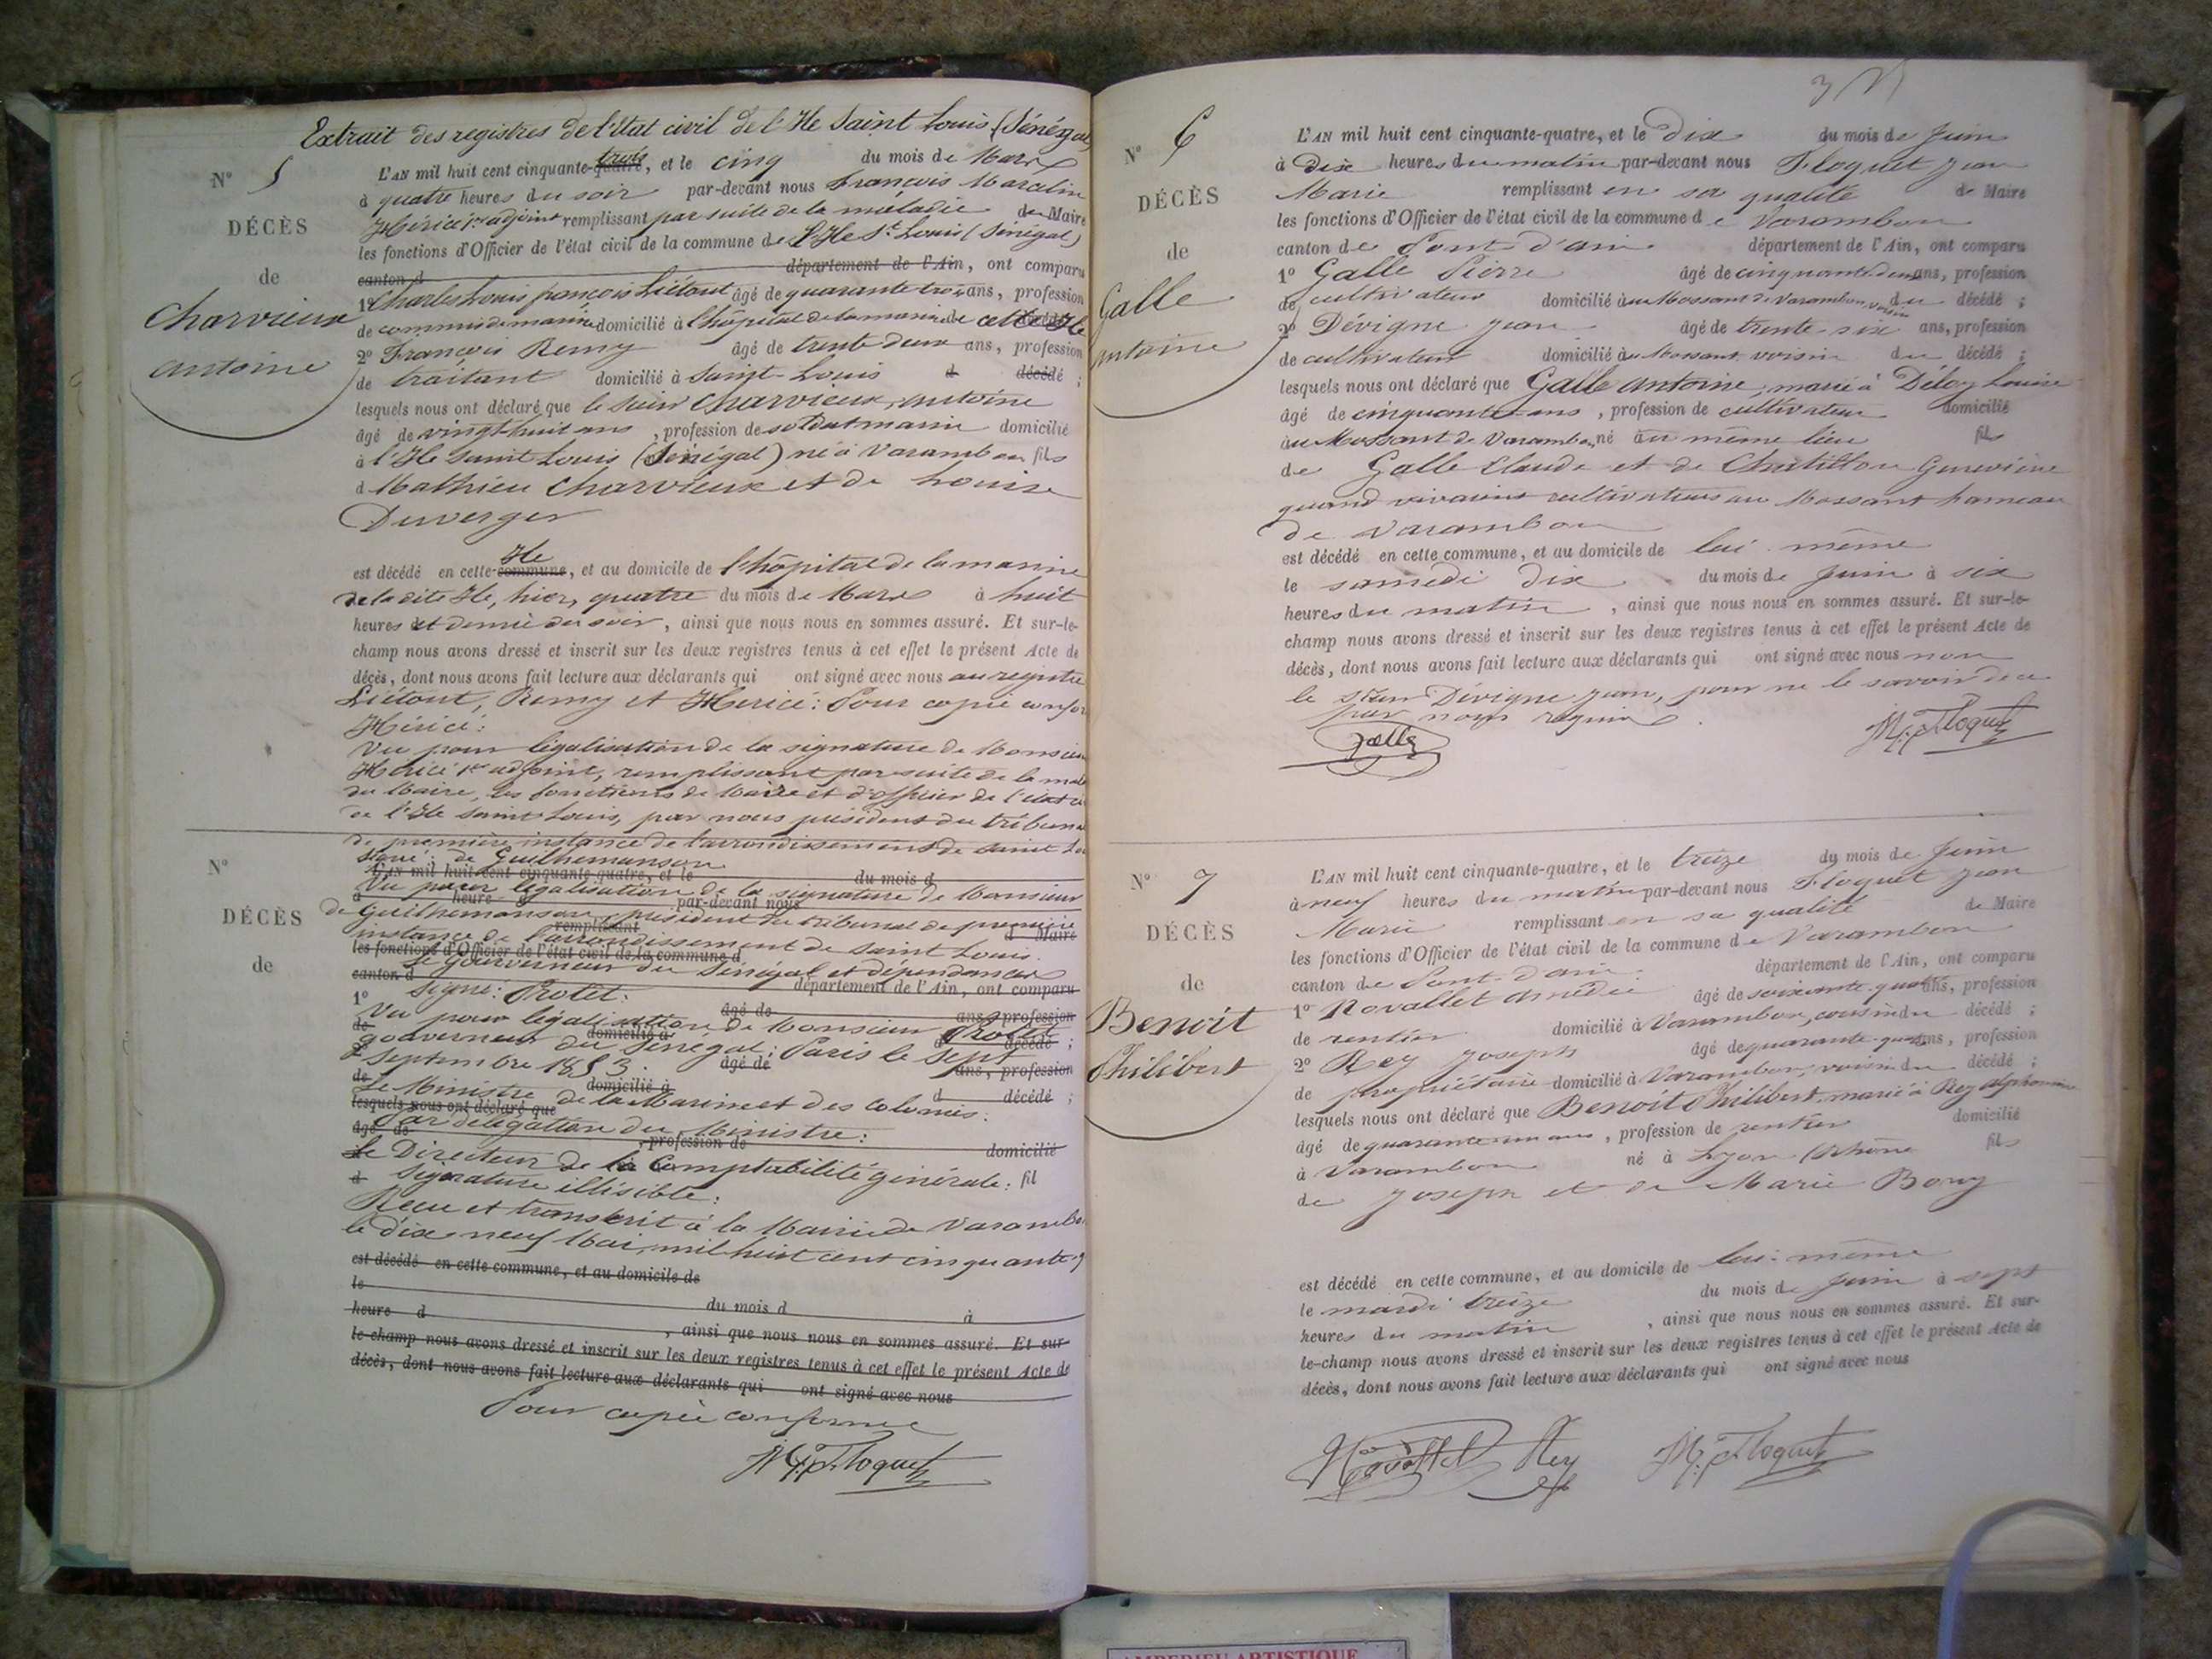 Extrait des registres de l'état civil de l'Ile Saint Louis (Sénégal)
N° 5
DÉCÈS
de
Charvieux
antoine
L'AN mil huit cent cinquante-quatre trois, et le cinq du mois de Mars
à quatre heures du soir par-devant nous François Marcelin
Héricé 1er adjoint remplissant par suite de la maladie du Maire
les fonctions d'Officier de l'état civil de la commune de l'Ile St Louis (Sénégal)
canton d département de l'Ain, ont comparu
1° Charles Louis françois Liétout âgé de quarante trois ans, profession
de commis de marine domicilié à l'hôpital de la marine de cette Ile
2° François Remy âgé de trente deux ans, profession
de traitant domicilié à Saint-Louis d décédé ;
lesquels nous ont déclaré que le sieur Charvieux, antoine
âgé de vingt-huit ans, profession de soldat marin domicilié
à l'Ile Saint Louis (Sénégal) né à Varambon fils
d Mathieu Charvieux et de Louise
Duverger
est décédé en cette commune Ile, et au domicile de l'hôpital de la marine
de la dite Ile, hier, quatre du mois de Mars à huit
heures et demie du soir, ainsi que nous nous en sommes assuré. Et sur-le-
champ nous avons dressé et inscrit sur les deux registres tenus à cet effet le présent Acte de
décès, dont nous avons fait lecture aux déclarants qui ont signé avec nous au registre
Liétout, Remy et Héricé: Pour copie confor
Héricé:
Vu pour légalisation de la signature de Monsieur
Héricé 1er adjoint, remplissant par suite de la mala
du Maire, les fonctions de Maire et d'officier de l'état ci
de l'Ile Saint Louis, par nous président du tribunal
de première instance de l'arrondissement de Saint Lo
Signé: de Guilhemanson
N°
DÉCÈS
de
L'AN mil huit cent cinquante-quatre, et le du mois d
Vu pour légalisation de la signature de Monsieur
à heure par-devant nous
de Guilhemanson, président du tribunal de première
remplissant d Maire
instance de l'arrondissement de Saint Louis.
les fonctions d'Officier de l'état civil de la commune d
Le Gouverneur du Sénégal et dépendances
canton d département de l'Ain, ont comparu
Signé: Protet:
1° âgé de ans, profession
Vu pour légalisation de Monsieur Protet
de domicilié à d décédé ;
gouverneur du Sénégal: Paris le sept
2° âgé de ans, profession
Septembre 1853.
de domicilié à d décédé ;
Le Ministre de la Marine et des Colonies:
lesquels nous ont déclaré que
Par délégation du Ministre:
âgé de , profession de domicilié
Le Directeur de la Comptabilité générale:
d fil
Signature illisible:
Reçu et transcrit à la Mairie de Varambon
le dix neuf Mai, mil huit cent cinquante
est décédé en cette commune, et au domicile de
le
heure d du mois d à
, ainsi que nous nous en sommes assuré. Et sur
le-champ nous avons dressé et inscrit sur les deux registres tenus à cet effet le présent Acte de
décès, dont nous avons fait lecture aux déclarants qui ont signé avec nous
Pour copie conforme
Floquet
N° 6
DÉCÈS
de
Galle
antoine
L'AN mil huit cent cinquante-quatre, et le dix du mois de Juin
à dix heures du matin par-devant nous Floquet Jean
Marie remplissant en sa qualité de Maire
les fonctions d'Officier de l'état civil de la commune de Varambon
canton de Pont d'ain département de l'Ain, ont comparu
1° Galle Pierre âgé de cinquante deux ans, profession
de cultivateur domicilié au Mossant de Varambon, voisin du décédé ;
2° Dévigne Jean âgé de trente-six ans, profession
de cultivateur domicilié au Mossant voisin du décédé ;
lesquels nous ont déclaré que Galle antoine, marié à Louise
âgé de cinquante ans, profession de cultivateur domicilié
au Mossant de Varambon, né au même lieu fils
de Galle Claude et de Chatillon Geneviève
quand vivaient cultivateurs au Mossant hameau
de Varambon
est décédé en cette commune, et au domicile de lui-même
le samedi dix du mois de Juin à six
heures du matin, ainsi que nous nous en sommes assuré. Et sur-le-
champ nous avons dressé et inscrit sur les deux registres tenus à cet effet le présent Acte de
décès, dont nous avons fait lecture aux déclarants qui ont signé avec nous non
le sieur Dévigne Jean, pour ne le savoir de ce
par nous requis.
Galle Floquet
N° 7
DÉCÈS
de
Benoit
Philibert
L'AN mil huit cent cinquante-quatre, et le treize du mois de Juin
à neuf heures du matin par-devant nous Floquet Jean
Marie remplissant en sa qualité de Maire
les fonctions d'Officier de l'état civil de la commune de Varambon
canton de Pont-d'ain. département de l'Ain, ont comparu
1° Novallet Amédée âgé de soixante-quatre ans, profession
de rentier domicilié à Varambon, cousin du décédé ;
2° Rey Joseph âgé de quarante-quatre ans, profession
de propriétaire domicilié à Varambon, voisin du décédé ;
lesquels nous ont déclaré que Benoit Philibert, marié à Rey Alphonsine
âgé de quarante un ans, profession de rentier domicilié
à Varambon né à Lyon (Rhône fils
de Joseph et de Marie Bony
est décédé en cette commune, et au domicile de lui-même
le mardi treize du mois de Juin à sept
heures du matin, ainsi que nous nous en sommes assuré. Et sur-
le-champ nous avons dressé et inscrit sur les deux registres tenus à cet effet le présent Acte de
décès, dont nous avons fait lecture aux déclarants qui ont signé avec nous
Novallet Rey Floquet
AMBERIEU ARTISTIQUE